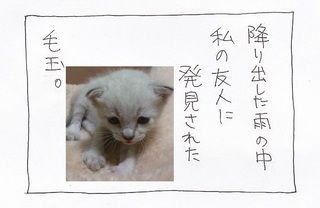 降り出した雨の中
私の友人に
発見された
毛玉。